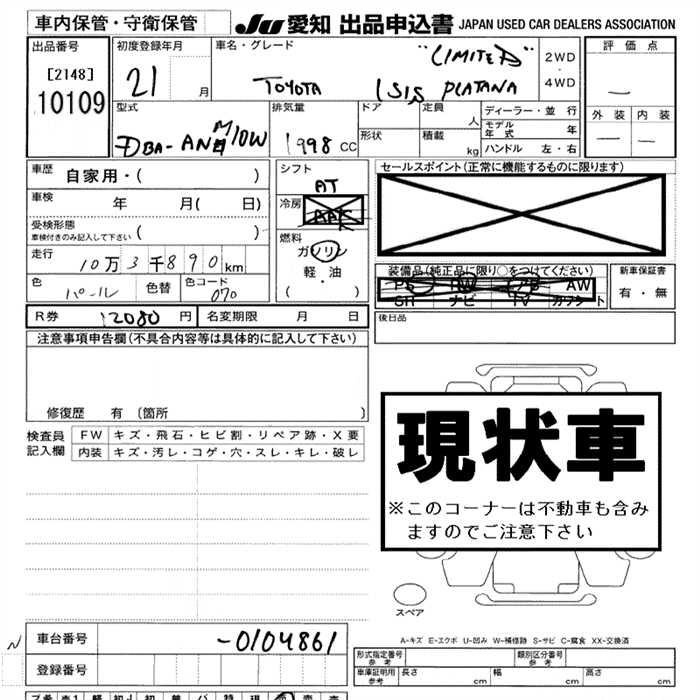 車内保管・守衛保管
JU 愛知 出品申込書 JAPAN USED CAR DEALERS ASSOCIATION
出品番号
[2148]
10109
初度登録年月
21 月
車名・グレード
"LIMITED"
TOYOTA ISIS PLATANA
2WD
・
4WD
評価点
—
外装 内装
— —
型式
DBA-ANM10W
排気量
1998 CC
ドア
定員
人
形状
積載
kg
ディーラー・並行
モデル年式 年
ハンドル 左・右
車歴 自家用・( )
車検 年 月( 日)
受検形態
車検付きのみ記入して下さい ( )
走行
10万3千890km
色
パール
色替
色コード
070
シフト
AT
冷房
AAC
燃料
ガソリン
軽・油
( )
セールスポイント(正常に機能するものに限ります)
装備品(純正品に限り○をつけてください)
PS PW AB AW
SR ナビ TV カワシート
新車保証書
有・無
後日品
R券 12080 円
名変期限 月 日
注意事項申告欄(不具合内容等は具体的に記入して下さい)
修復歴 有 〔箇所 〕
検査員
記入欄
FW キズ・飛石・ヒビ割・リペア跡・X要
内装 キズ・汚レ・コゲ・穴・スレ・キレ・破レ
現状車
※このコーナーは不動車も含み
ますのでご注意下さい
スペア
A-キズ E-エクボ U-凹み W-補修跡 S-サビ C-腐食 XX-交換済
車台番号 -0104861
登録番号
形式指定番号
参考
類別区分番号
参考
車庫証明用
参考
長さ cm
幅 cm
高さ cm